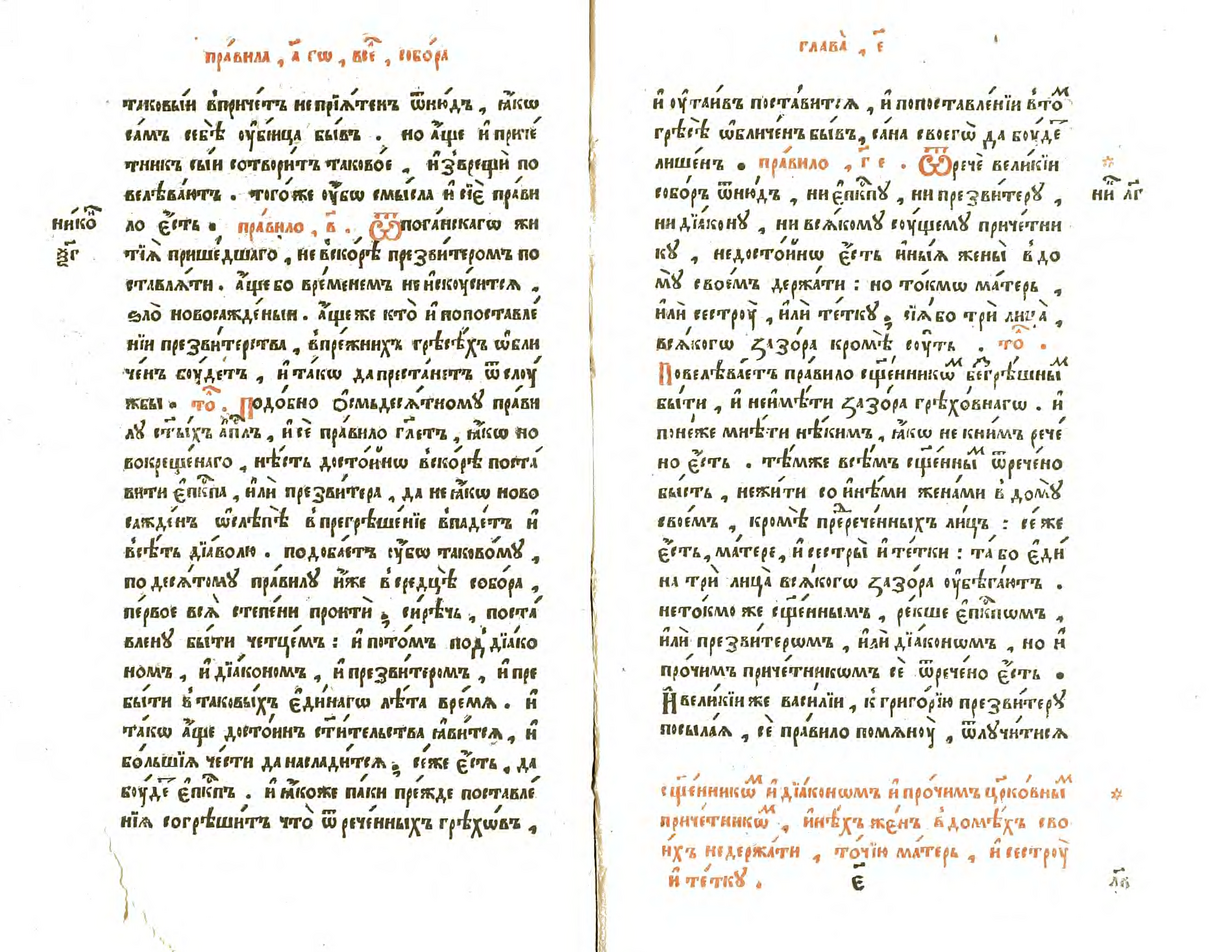 пра́вила , а҃ гѡ , все҆ , собо́ра
таковы́и впричє́тъ непрїѧ́тенъ ѿню́дъ , ꙗ҆́кѡ
са́мъ себѣ̀ ѹ҆бі́ица бы́въ . но а҆́ще и҆ приче́
тникъ сы́и сотвори́тъ таково́е , и҆зврещѝ по
велѣва́ютъ . того́же ѹ҆́бѡ смы́сла и҆ сїѐ прави
ло є҆́сть . пра́вило , в҃ . Ѿпога́нскагѡ жи
нико҆
н҃г
тїѧ̀ прише́дшаго , не вско́рѣ презви́теромъ по
ставлѧ́ти . а҆́щебо вре́менемъ не и҆скѹ́ситсѧ ,
ѕлѐ новосажде́ныи . а҆́щеже кто̀ и҆ попоставле́
нїи презви́терства , впре́жнихъ грѣсѣ́хъ ѡ҆бли
че́нъ бѹ́детъ , и҆ та́кѡ да преста́нетъ ѿ слѹ́
жбы . то҆ . Подо́бно ѻ҆смьдесѧ́тному пра́ви
лу ст҃ы́хъ а҆п҃лъ , и҆ сѐ пра́вило гл҃етъ , ꙗ҆́кѡ но
вокреще́наго , нѣ́сть досто́йнѡ вско́рѣ поста́
вити є҆пⷭ҇кпа , и҆лѝ презви́тера , да не ꙗ҆́кѡ ново
сажде́нъ ѡ҆слѣ́пѣ впрегрѣше́нїе впаде́тъ и҆
всѣ́ть дїа́волю . подоба́етъ ѹ҆́бѡ таково́мѹ ,
по десѧ́тому пра́вилу и҆́же в средцѣ̀ собо́ра ,
пе́рвое всѧ̀ сте́пени проитѝ ; си́рѣчь , поста́
влену бы́ти четце́мъ : и҆ пото́мъ под̾дїа́ко
номъ , и҆ дїа́кономъ , и҆ презви́теромъ , и҆ пре
бы́ти в таковы́хъ є҆ди́нагѡ лѣ́та вре́мѧ . и҆
та́кѡ а҆́ще досто́инъ ст҃и́тельства ꙗ҆ви́тсѧ , и҆
бо́льшїѧ че́сти да наслади́тсѧ ; се́же є҆́сть , да
бѹ́де є҆п҃кпъ . и҆ ꙗ҆́коже па́ки пре́жде поставле́
нїѧ согрѣши́тъ что̀ ѿ рече́нныхъ грѣхѡ́въ ,
глава̀ , є҃
и҆ ѹ҆таи́въ поста́витсѧ , и҆ попоставле́нїи в то́м
грѣсѣ̀ ѡ҆бличе́нъ бы́въ , са́на своегѡ̀ да бѹ́де
лише́нъ . пра́вило , г҃ е . Ѿрече́ вели́кїи
собо́ръ ѿню́дъ , ни є҆п҃кпу , ни презви́теру ,
ни҆ л҃г
ни дїа́кону , ни всѧ́кому сѹ́щему приче́тни
ку , недосто́йнѡ є҆́сть и҆ны́ѧ жены̀ в до
мѹ̀ свое́мъ держа́ти : но то́кмѡ ма́терь ,
и҆лѝ сестрѹ̀ , и҆лѝ те́тку ; сїѧ́бо трѝ лица̀ ,
всѧ́когѡ за́зора кромѣ̀ сѹ́ть . то҆ .
Повелѣва́етъ пра́вило сщ҃е́нникѡм безгрѣ́шным
бы́ти , и҆ неимѣ́ти за́зора грѣхо́внагѡ . и҆
поне́же мнѣ́ти нѣ́кимъ , ꙗ҆́кѡ не кни́мъ рече́
но є҆́сть . тѣ́мже всѣ́мъ сщ҃е́нным ѿрече́но
бы́сть , нежи́ти со и҆нѣ́ми жена́ми в домѹ̀
свое́мъ , кромѣ̀ прⷣерече́нныхъ ли́цъ : се́ же
є҆́сть , ма́тере , и҆ сестры̀ и҆ те́тки : та́ бо є҆ди́
на трѝ лица̀ всѧ́когѡ за́зора ѹ҆бѣга́ютъ .
нето́кмо же сщ҃е́ннымъ , ре́кше є҆п҃кпѡмъ ,
и҆лѝ презви́терѡмъ , и҆лѝ дїа́конѡмъ , но и҆
про́чимъ приче́тникѡмъ сѐ ѿрече́но є҆́сть .
И҆ вели́кїи же васи́лїи , к григо́рїю презви́теру
посыла́ѧ , сѐ пра́вило помѧнѹ̀ , ѿлучи́тисѧ
сщ҃е́нникѡм и҆ дїа́конѡмъ и҆ про́чимъ цр҃ко́вным
приче́тникѡм , и҆нѣ́хъ же́нъ в домѣ́хъ сво
и́хъ недержа́ти , то́чїю ма́терь , и҆ сестрѹ̀
и҆ те́тку .
є҃
л҃в